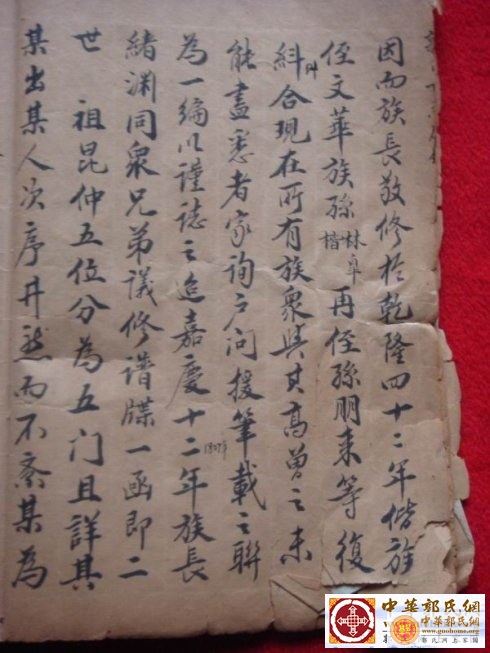 因而族長敬修於乾隆四十二年偕族
侄文華族孫林阜楷再侄孫朋来等復
糾合現在所有族衆與其高曾之未
能盡悉者家詢户問援筆載之聯
為一编以謹誌之迨嘉慶十二年族長
緒渊同衆兄弟議修譜牒一函即二
世 祖昆仲五位分為五门且詳其
某出某人次序井然而不紊某為
1807年
中華郭氏網
中華郭氏網
www.guohome.org
郭氏网上家園